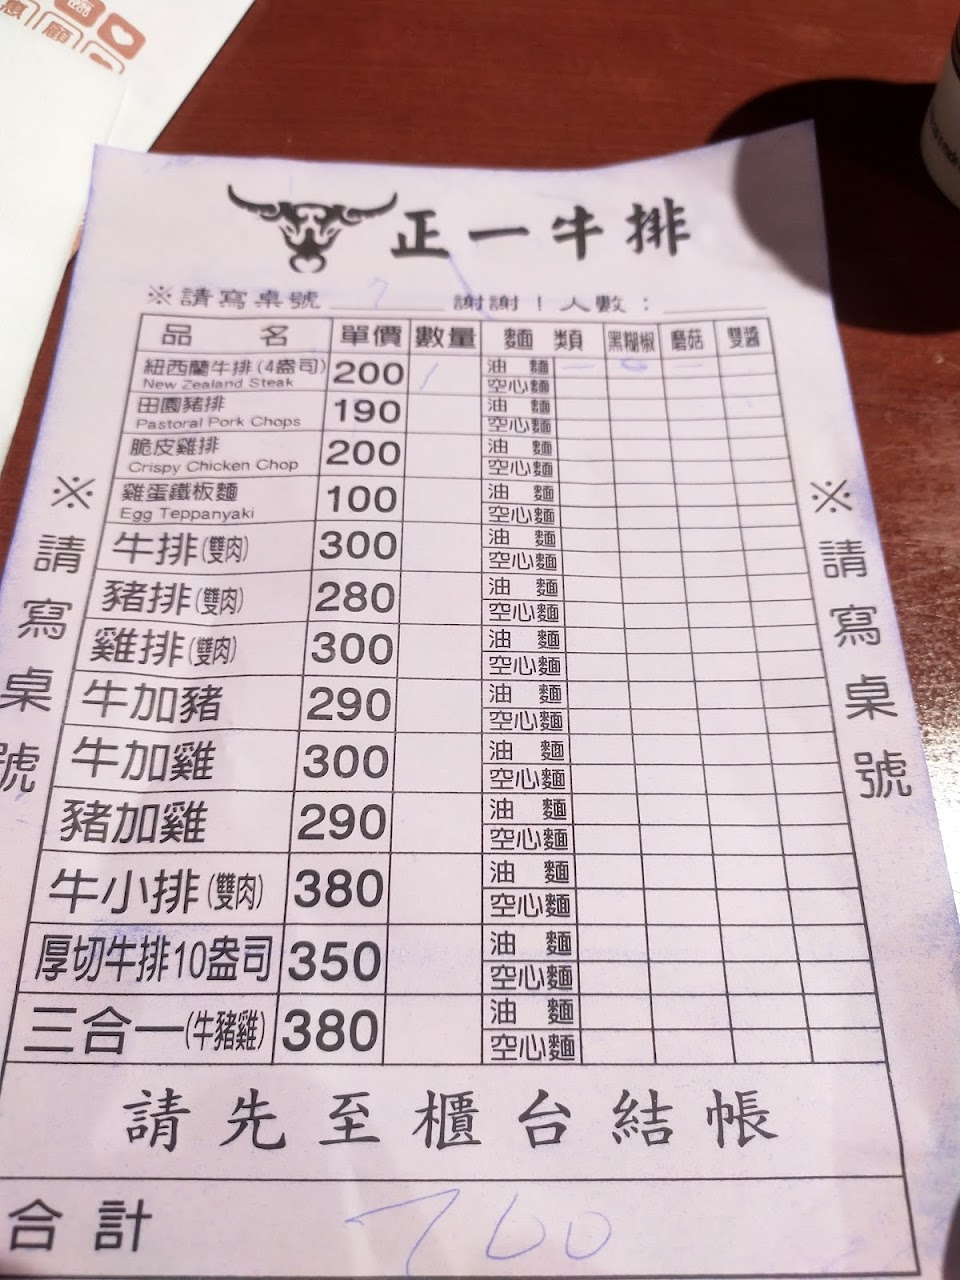 惠
顧
正一牛排
※請寫桌號 謝謝！人數：
品 名 單價 數量 麵 類 黑糊椒 蘑菇 雙醬
紐西蘭牛排(4盎司) 200 油 麵
New Zealand Steak 空心麵
田園豬排 190 油 麵
Pastoral Pork Chops 空心麵
脆皮雞排 200 油 麵
Crispy Chicken Chop 空心麵
雞蛋鐵板麵 100 油 麵
Egg Teppanyaki 空心麵
牛排(雙肉) 300 油 麵
空心麵
豬排(雙肉) 280 油 麵
空心麵
雞排(雙肉) 300 油 麵
空心麵
牛加豬 290 油 麵
空心麵
牛加雞 300 油 麵
空心麵
豬加雞 290 油 麵
空心麵
牛小排(雙肉) 380 油 麵
空心麵
厚切牛排10盎司 350 油 麵
空心麵
三合一(牛豬雞) 380 油 麵
空心麵
※請寫桌號
※請寫桌號
請先至櫃台結帳
合計 760